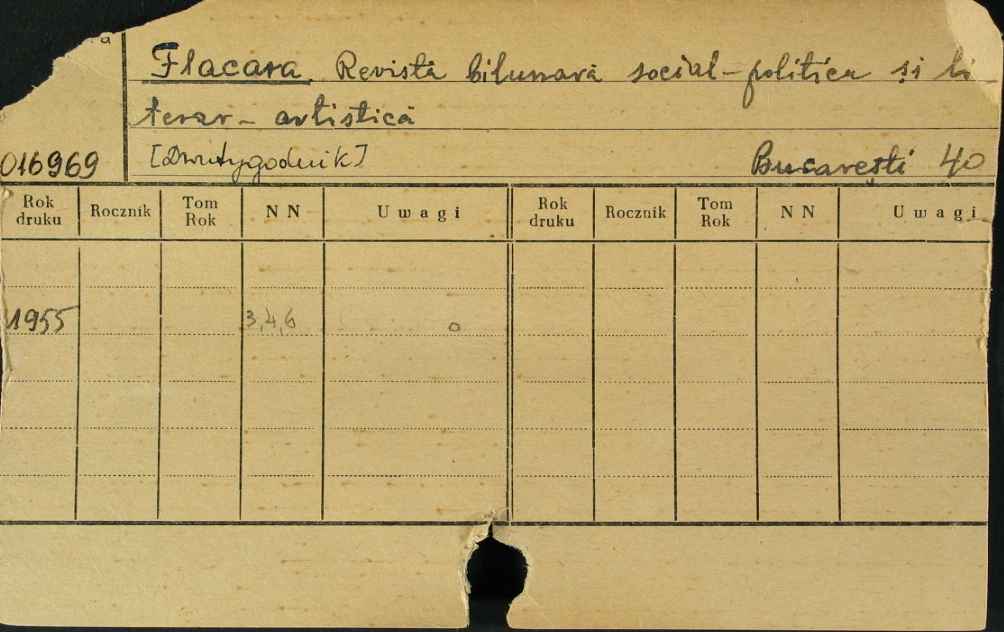 a
Flacara Revistă bilunară social-politica și li
terar-artistică
016969 [Dwutygodnik] București 40
Rok druku Rocznik Tom Rok NN Uwagi Rok druku Rocznik Tom Rok NN Uwagi
1955 3,4,6 o